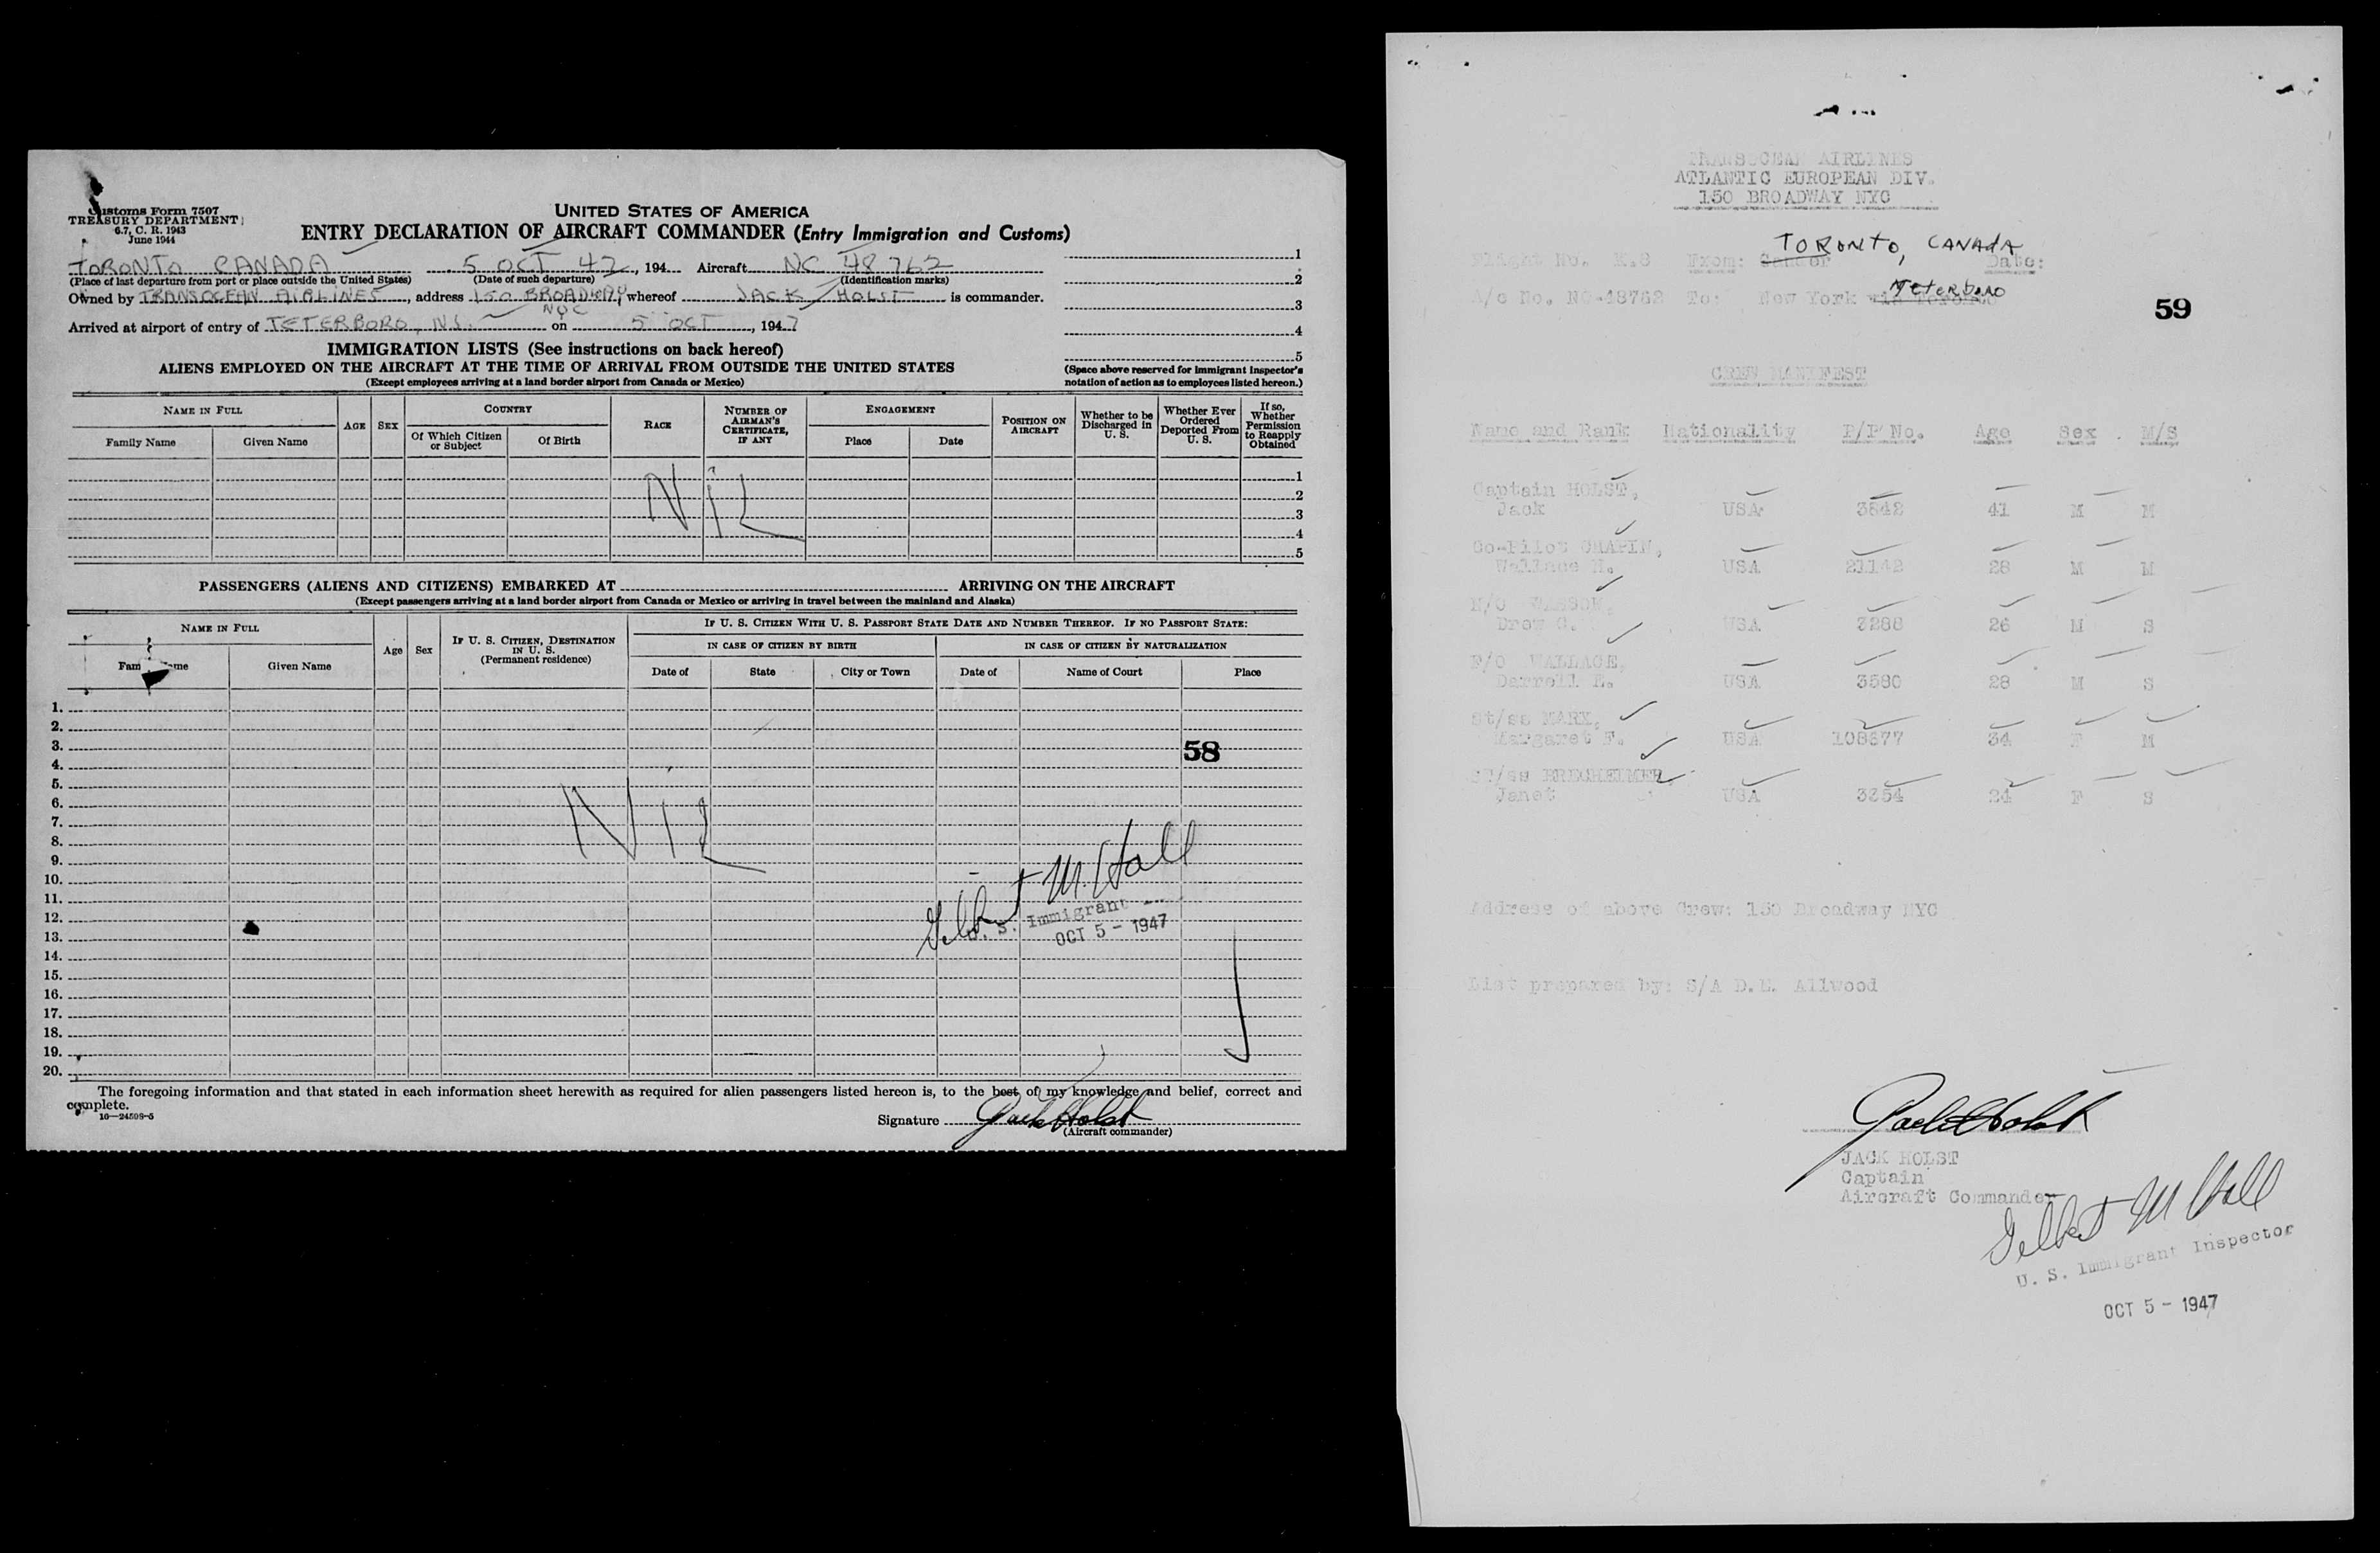 Customs Form 7507
TREASURY DEPARTMENT
6.7, C. R. 1943
June 1944
UNITED STATES OF AMERICA
ENTRY DECLARATION OF AIRCRAFT COMMANDER (Entry Immigration and Customs)
TORONTO CANADA 5 OCT 47, 194 Aircraft NC 48762
(Place of last departure from port or place outside the United States) (Date of such departure) (Identification marks)
Owned by TRANSOCEAN AIRLINES, address 150 BROADWAY NYC, whereof JACK HOLST is commander.
Arrived at airport of entry of TETERBORO, NJ. on 5 OCT, 1947
1
2
3
4
5
(Space above reserved for Immigrant Inspector's
notation of action as to employees listed hereon.)
IMMIGRATION LISTS (See instructions on back hereof)
ALIENS EMPLOYED ON THE AIRCRAFT AT THE TIME OF ARRIVAL FROM OUTSIDE THE UNITED STATES
(Except employees arriving at a land border airport from Canada or Mexico)
NAME IN FULL
Family Name Given Name
AGE SEX
COUNTRY
Of Which Citizen or Subject Of Birth
RACE
NUMBER OF AIRMAN'S CERTIFICATE, IF ANY
ENGAGEMENT
Place Date
POSITION ON AIRCRAFT
Whether to be Discharged in U. S.
Whether Ever Ordered Deported From U. S.
If so, Whether Permission to Reapply Obtained
1
2
3
4
5
NIL
PASSENGERS (ALIENS AND CITIZENS) EMBARKED AT ARRIVING ON THE AIRCRAFT
(Except passengers arriving at a land border airport from Canada or Mexico or arriving in travel between the mainland and Alaska)
NAME IN FULL
Given Name
Age Sex
IF U. S. CITIZEN, DESTINATION IN U. S. (Permanent residence)
IF U. S. CITIZEN WITH U. S. PASSPORT STATE DATE AND NUMBER THEREOF. IF NO PASSPORT STATE:
IN CASE OF CITIZEN BY BIRTH IN CASE OF CITIZEN BY NATURALIZATION
Date of State City or Town Date of Name of Court Place
1.
2.
3.
58
4.
5.
6.
7.
NIL
8.
9.
10.
11.
12.
13.
14.
15.
16.
17.
18.
19.
20.
Gilbert M. Hall
U. S. Immigrant
OCT 5 - 1947
The foregoing information and that stated in each information sheet herewith as required for alien passengers listed hereon is, to the best of my knowledge and belief, correct and
complete.
16—24598-5
Signature Jack Holst
(Aircraft commander)
TRANSOCEAN AIRLINES
ATLANTIC EUROPEAN DIV.
150 BROADWAY NYC
TORONTO, CANADA
Flight No. M.8 From: Gander Date:
Teterboro
A/c No. NC-48762 To: New York via Toronto
59
CREW MANIFEST
Name and Rank Nationality P/P No. Age Sex M/S
Captain HOLST,
Jack USA 3842 41 M M
Co-Pilot CHAPIN,
Wallace H. USA 21142 28 M M
N/O WASSOW,
Drew C. USA 3288 26 M S
F/O WALLACE,
Darrell E. USA 3580 28 M S
St/ss MARX,
Margaret F. USA 108877 34 F M
ST/ss BRECHEIMER
Janet USA 3354 24 F S
Address of above Crew: 150 Broadway NYC
List prepared by: S/A D.E. Allwood
Jack Holst
JACK HOLST
Captain
Aircraft Commander
Gilbert M Hall
U. S. Immigrant Inspector
OCT 5 - 1947